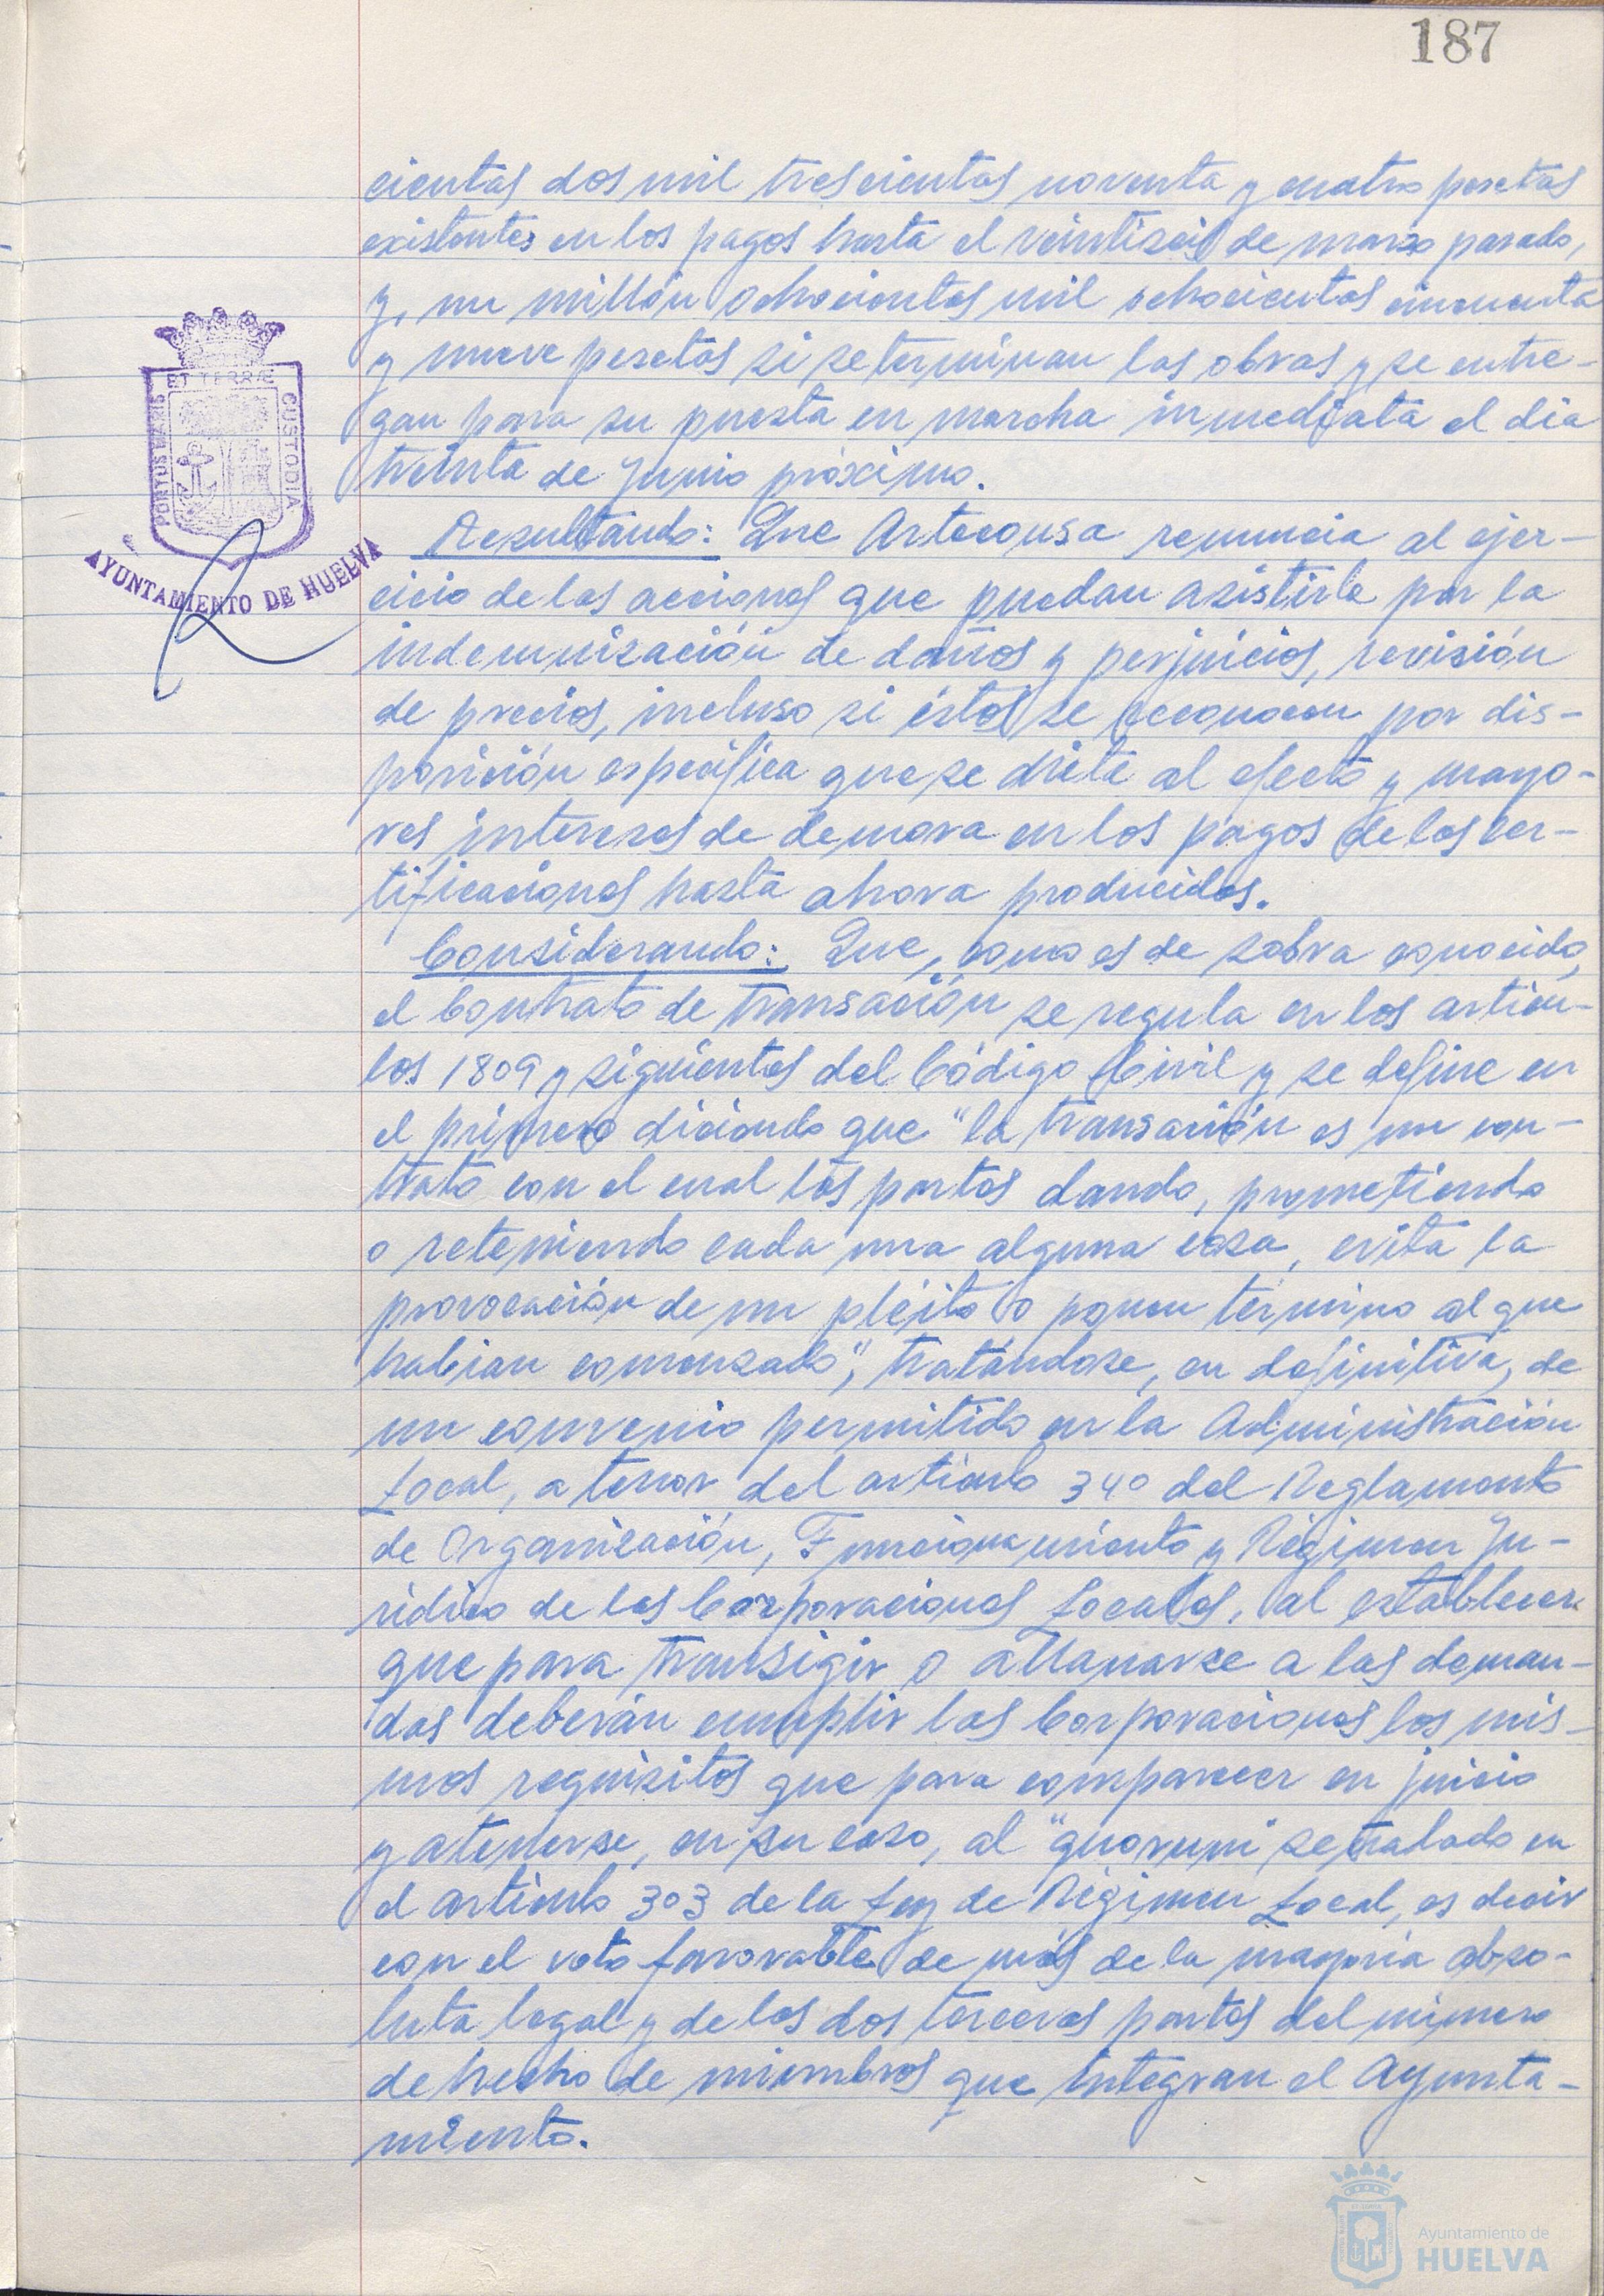 187
cientas dos mil trescientas noventa y cuatro pesetas
existentes en los pagos hasta el veintiseis de marzo pasado,
y, un millón ochocientas mil ochocientas cincuenta
y nueve pesetas si se terminan las obras y se entre-
gan para su puesta en marcha inmediata el dia
treinta de Junio próximo.
Resultando: Que Artecousa renuncia al ejer-
cicio de las acciones que puedan asistirle por la
indemnización de daños y perjuicios, revisión
de precios, incluso si éstos se reconocen por dis-
posición especifica que se dicte al efecto y mayo-
res intereses de demora en los pagos de las cer-
tificaciones hasta ahora producidas.
Considerando: Que, como es de sobra conocido,
el Contrato de transación se regula en los articu-
los 1809 y siguientes del Código Civil y se define en
el primero diciendo que "la transación es un con-
trato con el cual las partes dando, prometiendo
o reteniendo cada una alguna cosa, evita la
provocación de un pléito o ponen término al que
habian comenzado", tratándose, en definitiva, de
un convenio permitido en la Administración
Local, a tenor del articulo 340 del Reglamento
de Organización, Funcionamiento y Régimen Ju-
ridico de las Corporaciones Locales, al establecer
que para transigir o allanarse a las deman-
das deberán cumplir las Corporaciones los mis-
mos requisitos que para comparecer en juicio
y atenerse, en su caso, al "quorum" señalado en
el articulo 303 de la Ley de Régimen Local, es decir
con el voto favorable de más de la mayoria abso-
luta legal y de las dos terceras partes del número
de hecho de miembros que integran el Ayunta-
miento.
PORTUS MARIS
ET TERRÆ
CUSTODIA
AYUNTAMIENTO DE HUELVA
Ayuntamiento de
HUELVA